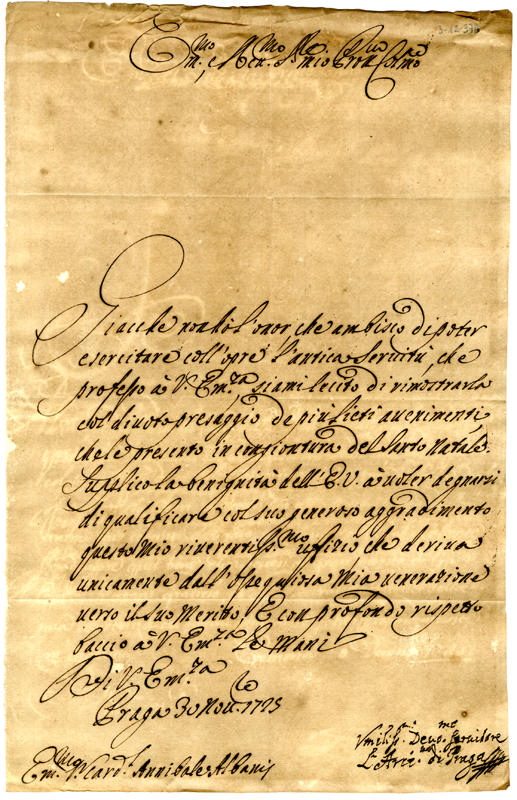 Em.mo e Ren.mo Sig.re mio Pron Colmo
Giacche non hò l'onor, che ambisco di poter
esercitare coll'opre l'antica servitù, che
professo à V. Em.za siami lecito di rimostrarla
col divoto presaggio de più lieti avenimenti,
che le presento in congiontura del Santo Natale.
Supplico la benignità dell'E.V. à voler degnarsi
di qualificare col suo generoso aggradimento
questo mio riverentiss.mo uffizio che deriva
unicamente dall'ossequiosa mia venerazione
verso il suo Merito, E con profondo rispetto
baccio à V. Em.za Le Mani
Di V. Em.za
Praga 30 Nov.
Umiliss. Devo.me Servitore
L'Arc. di Praga
Em.mo Card. Annibale Albani